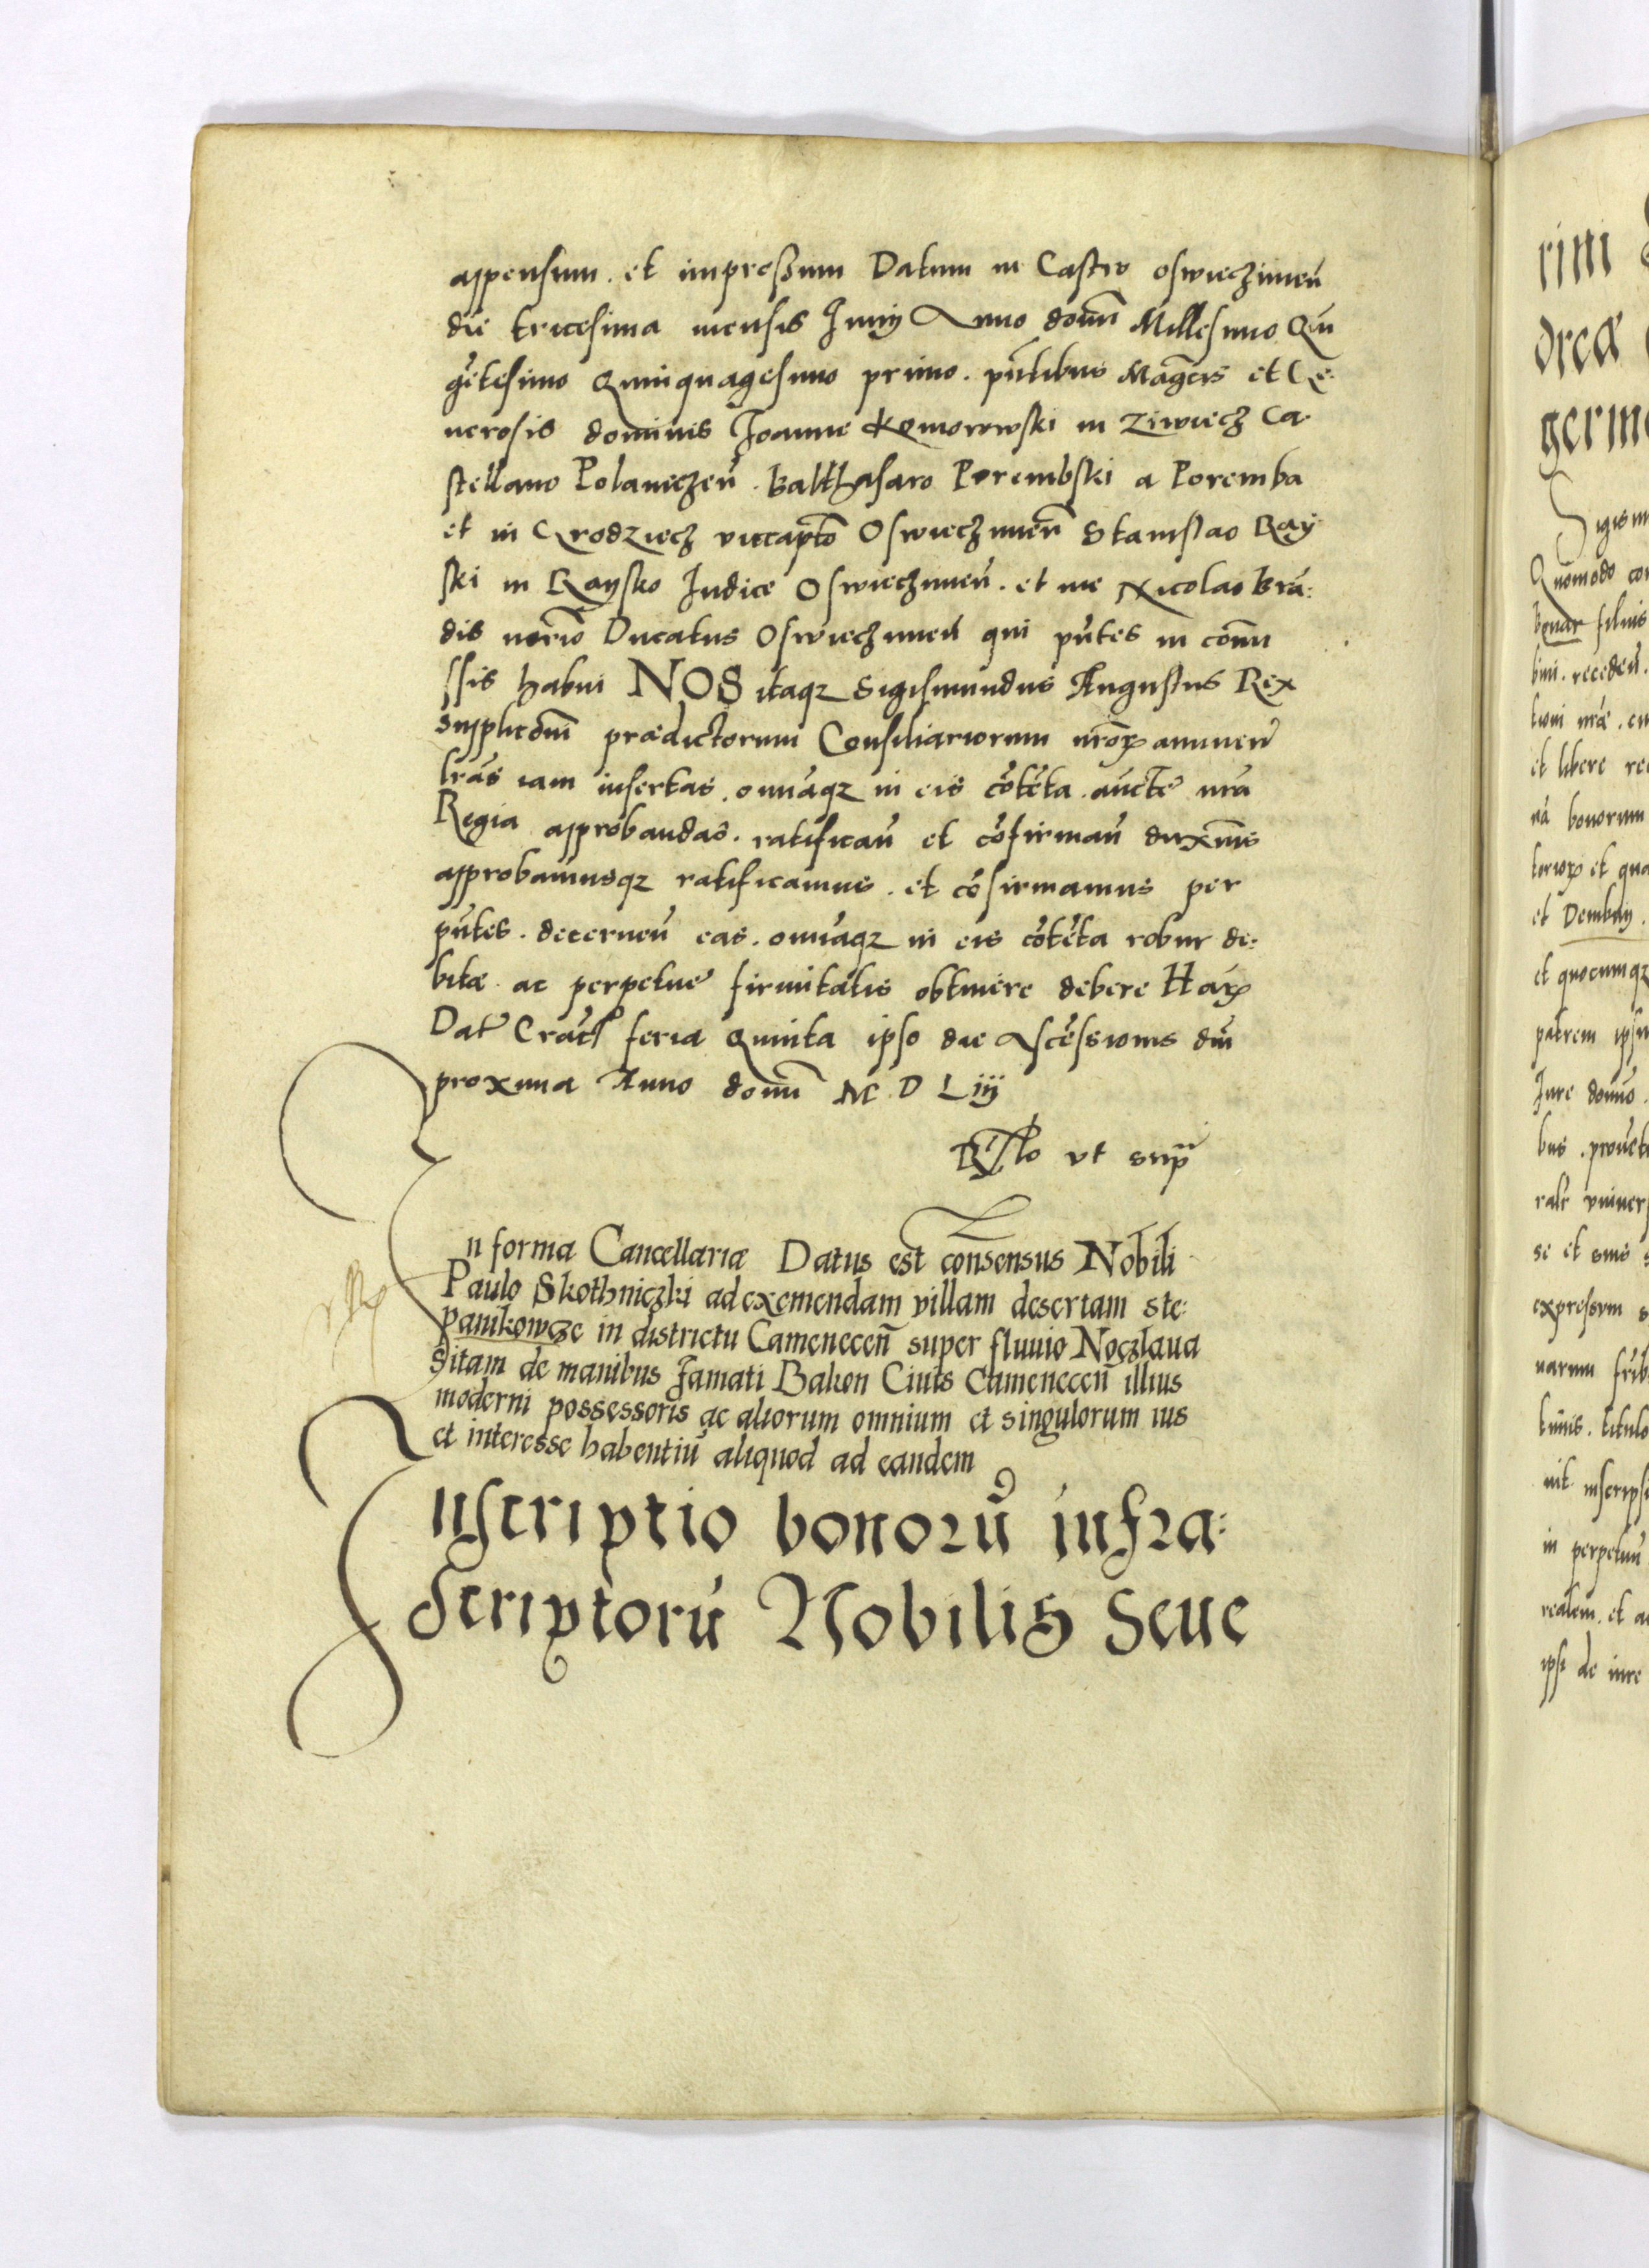 appensum. et impressum Datum in Castro oswieczimeñ
die tricesima mensis Junij Anno domĩ Millesimo Quĩ
gẽtesimo Quinquagesimo primo. pñtibus Magcis et Ge:
nerosis dominis Joanne Komorowski in Ziwiecz Ca
stellano Polanieczeñ. Balthasaro Porembski a Poremba
et in Grodziecz vicecapto Oswieczimeñ Stanislao Ray
ski in Raysko Judice Oswieczimeñ. et me Nicolao Brã:
dis norio Ducatus Oswieczimeñ qui pñtes in comi
ssis habui NOS itaqz Sigismundus Augustus Rex
supplicõni prædictorum Consiliariorum nrõrum annueñ
lrãs iam insertas. omniaqz in eis cõtẽta. aucte nrã
Regia approbandas. ratificañ et cõfirmañ duximus
approbamusqz ratificamus. et cõfirmamus per
pñtes. decerneñ eas. omniaqz in eis cõtẽta robur de:
bitæ ac perpetue firmitatis obtinere debere Harum
Dat Crac feria Quinta ipso die Ascẽsionis dñi
proxima Anno domĩ M D L iij
Rlo vt sup
In forma Cancellariæ Datus est consensus Nobili
Paulo Skothniczki ad exemendam villam desertam ste:
panikowcze in districtu Cameneceñ super fluuio Noczlaua
sitam de manibus famati Bakon Ciuis Cameneceñ illius
moderni possessoris ac aliorum omnium et singulorum ius
et interesse habentiũ aliquod ad eandem
Inscriptio bonorũ infra:
scriptorũ Nobilis Seue
rini
orcæ
germ
Sigism
Quomodo con
Bonar filius
bini. recedeñ.
tioni nræ. cu
et libere re
nã bonorum
toriorum et qua
et Dembni.
et quocumqz
patrem ipsiu
Jure domõ.
bus. prouẽt
ralr vniuer
se et suis
expressum s
uarum frib
timis. titulo
uit inscripsi
in perpetuũ
realem. et ac
ipsi de iure